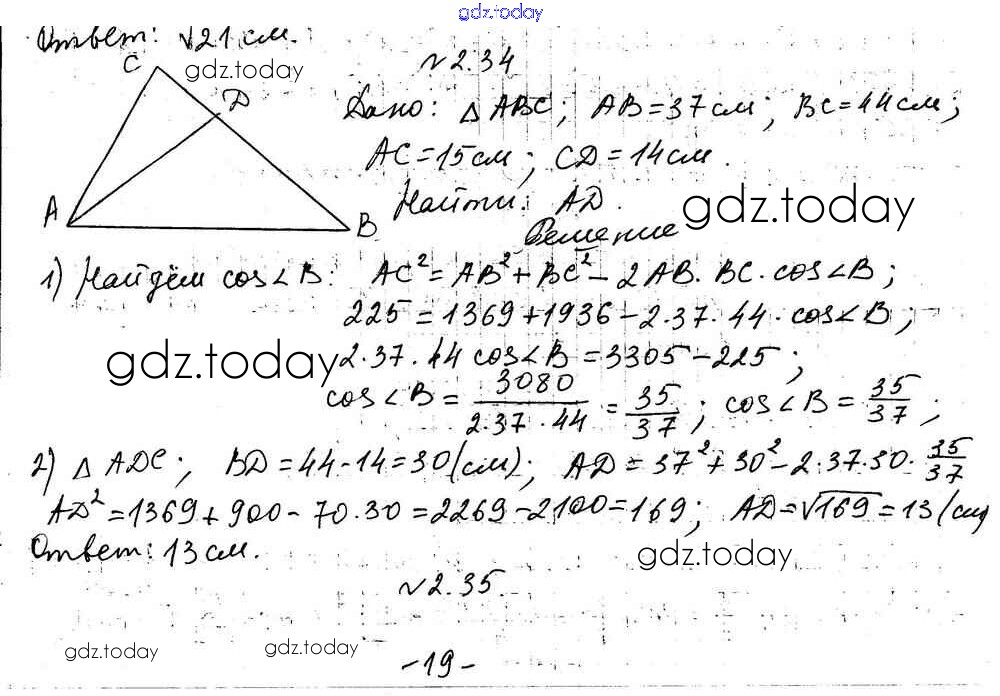 gdz.today
Ответ: √21 см.
gdz.today
№2.34
C
D
A
B
Дано: △ABC; AB=37см; BC=44см;
AC=15см; CD=14см.
Найти: AD.
gdz.today
Решение
1) Найдём cos∠B: AC²=AB²+BC²−2AB·BC·cos∠B;
225=1369+1936−2·37·44·cos∠B;
gdz.today
2·37·44 cos∠B=3305−225;
cos∠B = 3080/2·37·44 = 35/37; cos∠B = 35/37;
2) △ADC; BD=44−14=30(см); AD=37²+30²−2·37·30·35/37
AD²=1369+900−70·30=2269−2100=169; AD=√169=13(см)
Ответ: 13см.
gdz.today
№2.35.
gdz.today
gdz.today
-19-